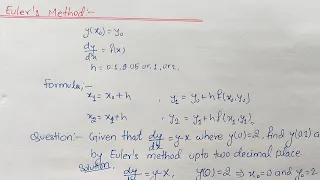 Euler's Method:-
y(x₀) = y₀
dy/dx = f(x)
h = 0.1, 0.05 or 1, or 2.
Formula:-
x₁ = x₀+h , y₁ = y₀+h f(x₀,y₀)
x₂ = x₁+h , y₂ = y₁+h f(x₁,y₁)
Question:- Given that dy/dx = y-x where y(0)=2, find y(0.1) a
by Euler's method upto two decimal place
Solution, dy/dx = y-x, y(0)=2 ⇒ x₀=0 and y₀=2